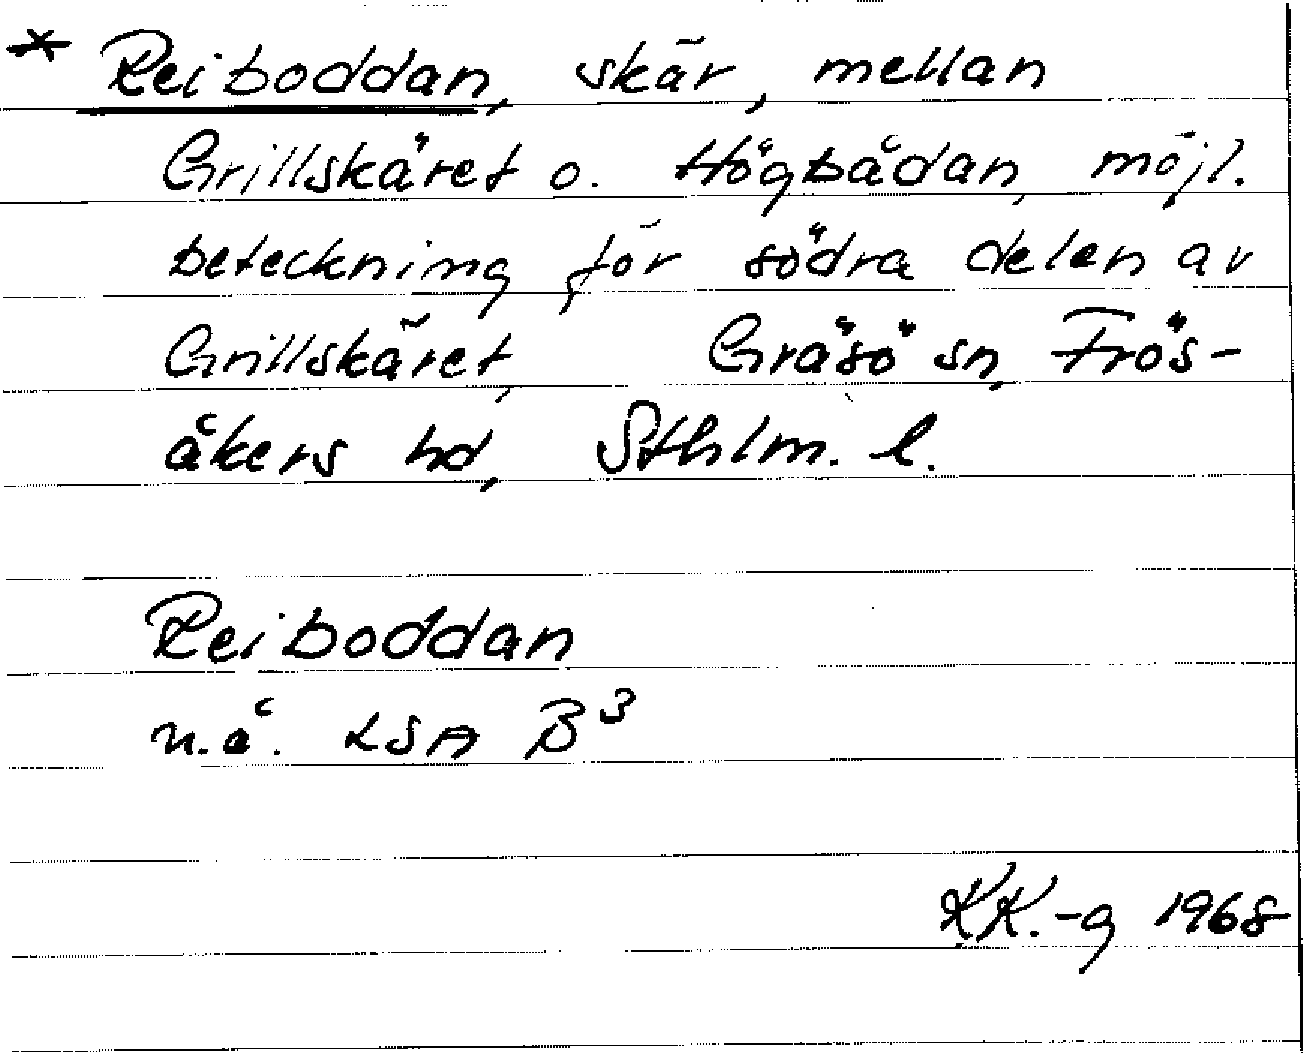 * Reiboddan, skär, mellan
Grillskäret o. Högbådan, möjl.
beteckning för södra delen av
Grillskäret, Gräsö sn, Frös-
åkers hd, Sthlm. l.
Reiboddan
n.å. LSA B3
KK.-g 1968